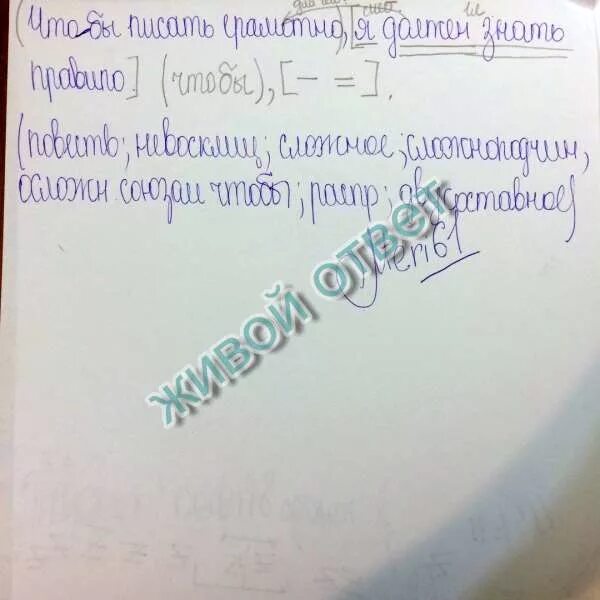 (Что-бы писать грамотно), [я должен знать
правило] (чтобы), [– =].
(повеств; невосклиц; сложное; сложноподчин,
осложн. союзам чтобы; распр; двусоставное)
Meri61
ЖИВОЙ ОТВЕТ